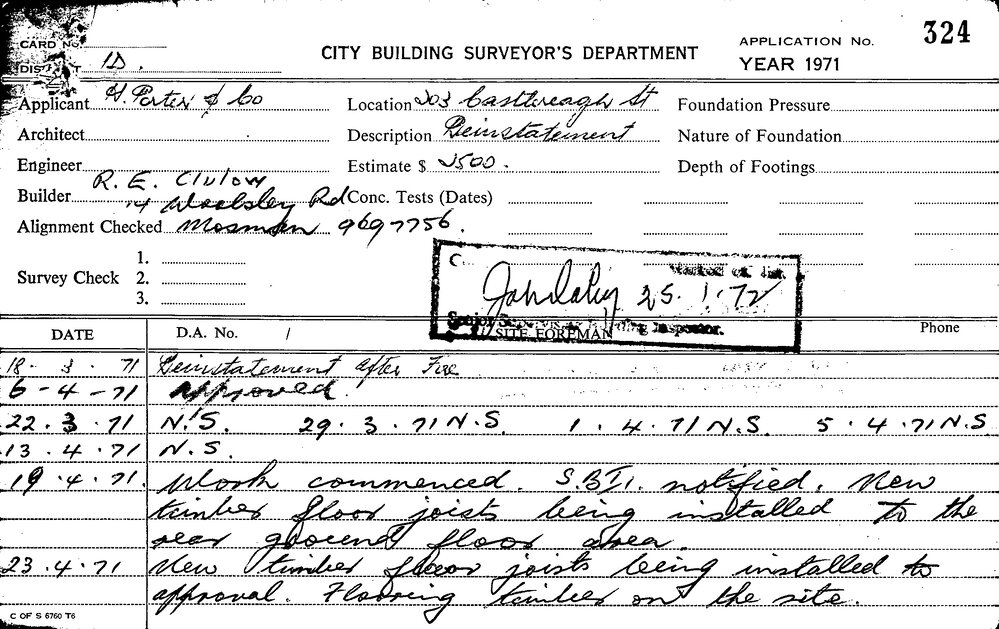 CARD No.
324
CITY BUILDING SURVEYOR'S DEPARTMENT
APPLICATION No.
YEAR 1971
DISTRICT 1D.
Applicant H. Porter & Co Location 203 Castlereagh St Foundation Pressure
Architect Description Reinstatement Nature of Foundation
Engineer Estimate $ 2500. Depth of Footings
Builder R. E. Clulow
14 Wolseley Rd Conc. Tests (Dates)
Alignment Checked Mosman 969 7756.
Survey Check 1.
2.
3.
C
25.1.72
Senior Building Inspector.
SITE FOREMAN
Phone
DATE D.A. No. /
18. 3. 71 Reinstatement after Fire
6-4-71 Approved.
22.3.71 N.S. 29.3.71 N.S. 1.4.71 N.S. 5.4.71 N.S.
13.4.71 N.S.
19.4.71. Work commenced. S.B.I. notified. New
timber floor joists being installed to the
rear ground floor area.
23.4.71 New timber floor joists being installed to
approval. Flooring timber on the site.
C OF S 6760 T6